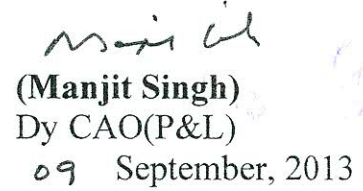 (Manjit Singh)
Dy CAO(P&L)
09 September, 2013